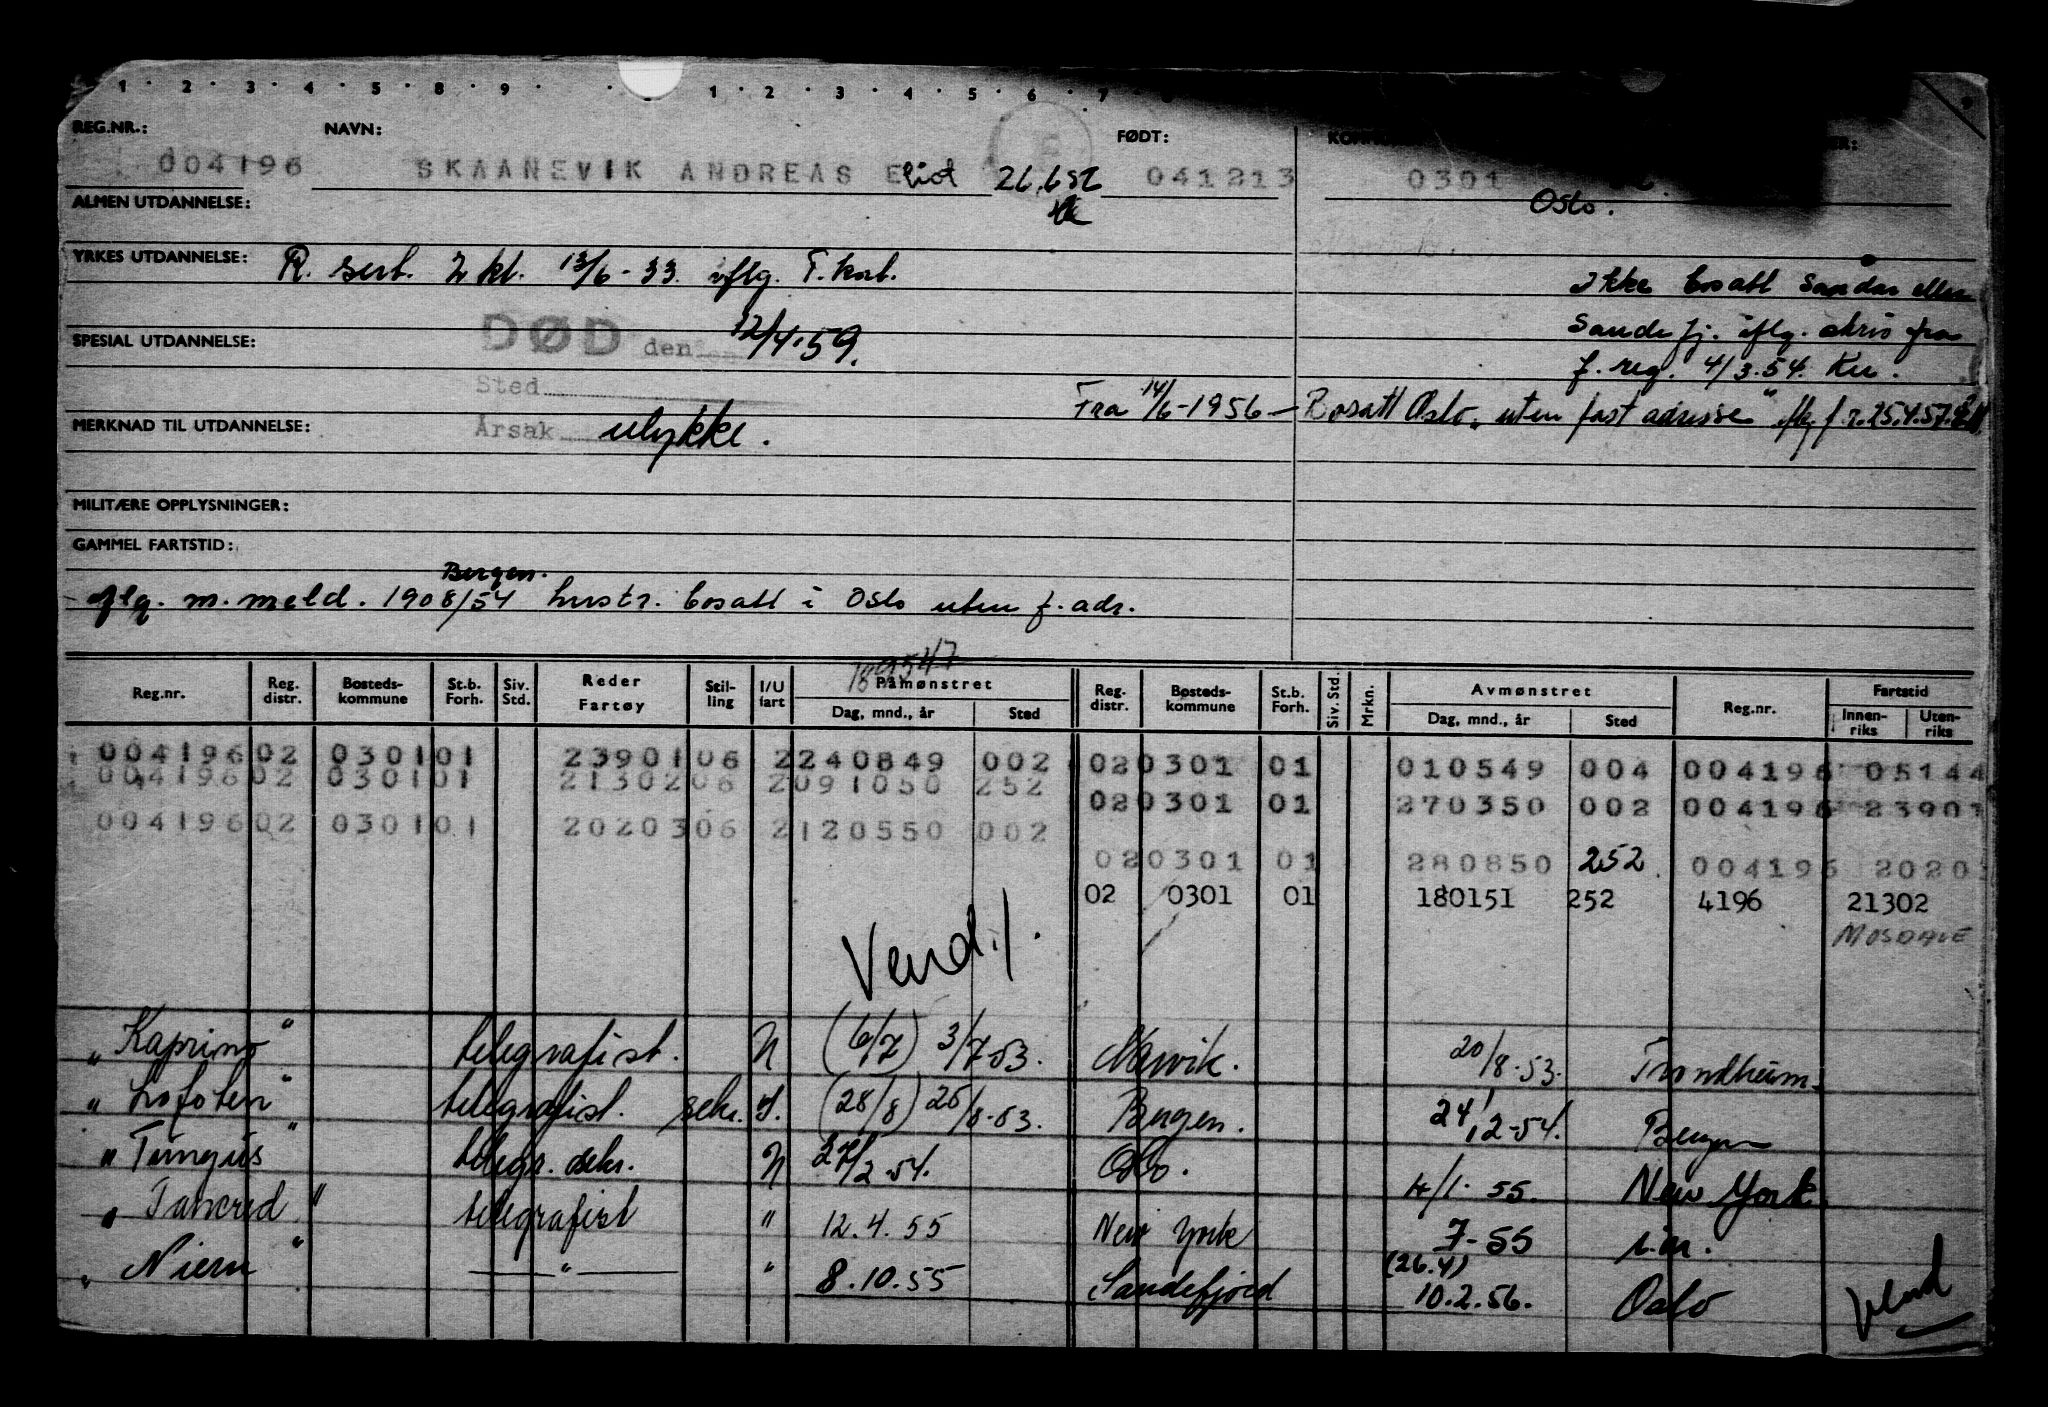 1 · 2 · 3 · 4 · 5 · 8 · 9 · 1 · 2 · 3 · 4 · 5 · 6 · 7 ·
REG.NR.: NAVN: FØDT:
004196 SKAANEVIK ANDREAS Eliot 26.6 52 041213 0301
Oslo.
ALMEN UTDANNELSE:
YRKES UTDANNELSE: R. sert. 2 kl. 13/6-33. iflg. T. kort.
Ikke bosatt Sandar eller
Sandefj. iflg. skriv fra
f. reg. 4/3.54.
DØD den 12/4.59.
SPESIAL UTDANNELSE:
Sted
Fra 14/6-1956 - Bosatt Oslo "uten fast adresse" iflg. f.r. 25.4.57.
MERKNAD TIL UTDANNELSE:
Årsak ulykke.
MILITÆRE OPPLYSNINGER:
GAMMEL FARTSTID:
Bergen.
iflg. m.meld. 1908/54 hustr. bosatt i Oslo uten f. adr.
189547
Reg.nr. Reg. distr. Bosteds-kommune St.b. Forh. Siv. Std. Reder Fartøy Stil-ling I/U fart Påmønstret Dag, mnd., år Sted Reg. distr. Bosteds-kommune St.b. Forh. Siv. Std. Mrkn. Avmønstret Dag, mnd., år Sted Reg.nr. Fartstid Innen-riks Uten-riks
004196 02 0301 01 23901 06 2 240849 002 02 0301 01 010549 004 004196 05144
004196 02 0301 01 21302 06 2 091050 252
02 0301 01 270350 002 004196 23901
004196 02 0301 01 20203 06 2 120550 002
02 0301 01 280850 252 004196 2020
02 0301 01 180151 252 4196 21302
MOSDALE
Vend!
"Kaprino" telegrafist. N (6/7) 3/7-53. Narvik. 20/8-53. Trondheim.
"Lofoten" telegrafist. sekr. I. (28/8) 25/8-53. Bergen. 24/12-54. Bergen
"Tungus" telegr. sekr. N 27/2-54. Oslo. 4/1-55. New York.
"Tancred" telegrafist " 12.4.55 New York 7-55 i.m.
(26.4)
"Niern" —"— " 8.10.55 Sandefjord 10.2.56. Oslo
Vend